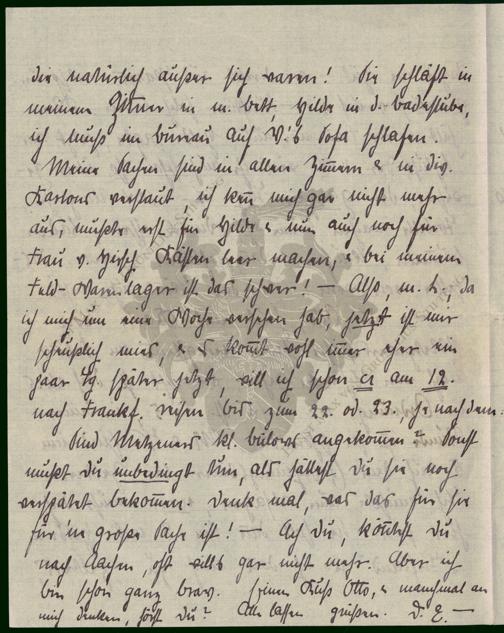 die natürlich außer sich waren! Sie schläft in
meinem Zimer in m. bett, Hilde in d. badestube,
ich muß im bureau auf V.'s Sofa schlafen.
Meine Sachen sind in allen Zimern & in div.
Kartons verstaut, ich ken mich gar nicht mehr
aus, mußte erst für Hilde & nun auch noch für
Frau v. Hirsch Kästen leer machen, & bei meinem
Feld-Warenlager ist das schwer! — Also, m. L., da
ich mich um eine Woche versehen hab, jetzt ist mir
scheußlich mies & es komt wohl imer eher ein
paar Tg später jetzt, will ich schon ca am 12.
nach Frankf. reisen bis zum 22. od. 23., je nachdem.
Sind Metzeners kl. bülows angekomen? Sonst
mußt du unbedingt tun, als hättest du sie noch
verspätet bekomen. Denk mal, was das für sie
für ne große Sache ist! — Ach du, köntest du
nach Aachen, oft will's gar nicht mehr. Aber ich
bin schon ganz brav. Einen Kuß Otto, & manchmal an
mich denken, hörst du? Alle lassen grüßen. D. E. —